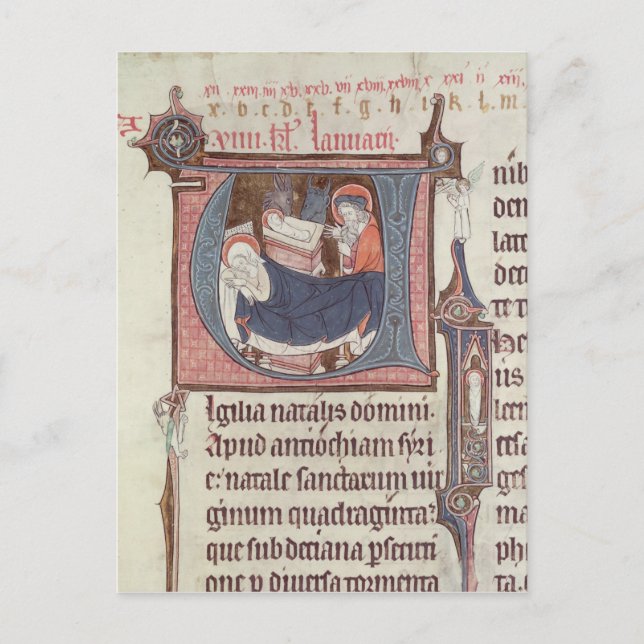 xii. xxiii. iiii xv. xxv. vii xviii. xxviii x xxi ii xiii.
x.b.c.d.e.f.g.h.i.k.l.m.
A
viiii. kl. Ianuarii.
Igilia natalis domini.
Apud antiochiam syri
e: natale sanctarum uir
ginum quadraginta:
que sub deciana psecuti
one p diuersa tormenta
nib
den
late
deci
te te
Ne
us
lern
ersa
gef
ma
phi
ta. e